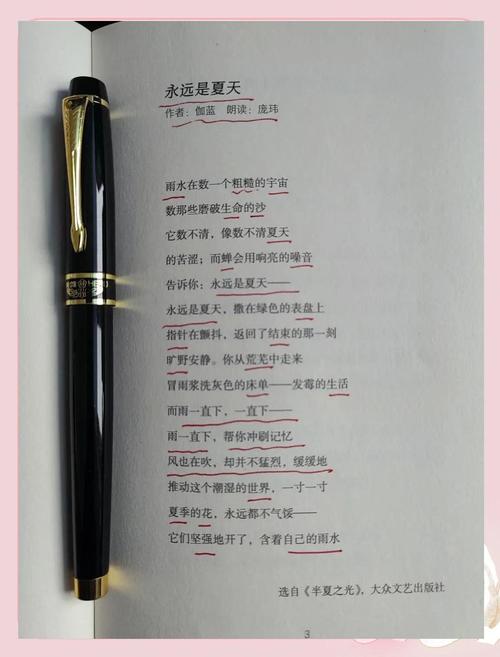 永远是夏天
作者：伽蓝　朗读：庞玮
雨水在数一个粗糙的宇宙
数那些磨破生命的沙
它数不清，像数不清夏天
的苦涩；而蝉会用响亮的噪音
告诉你：永远是夏天——
永远是夏天，撒在绿色的表盘上
指针在颤抖，返回了结束的那一刻
旷野安静。你从荒芜中走来
冒雨浆洗灰色的床单——发霉的生活
而雨一直下，一直下——
雨一直下，帮你冲刷记忆
风也在吹，却并不猛烈，缓缓地
推动这个潮湿的世界，一寸一寸
夏季的花，永远都不气馁——
它们坚强地开了，含着自己的雨水
选自《半夏之光》，大众文艺出版社
3